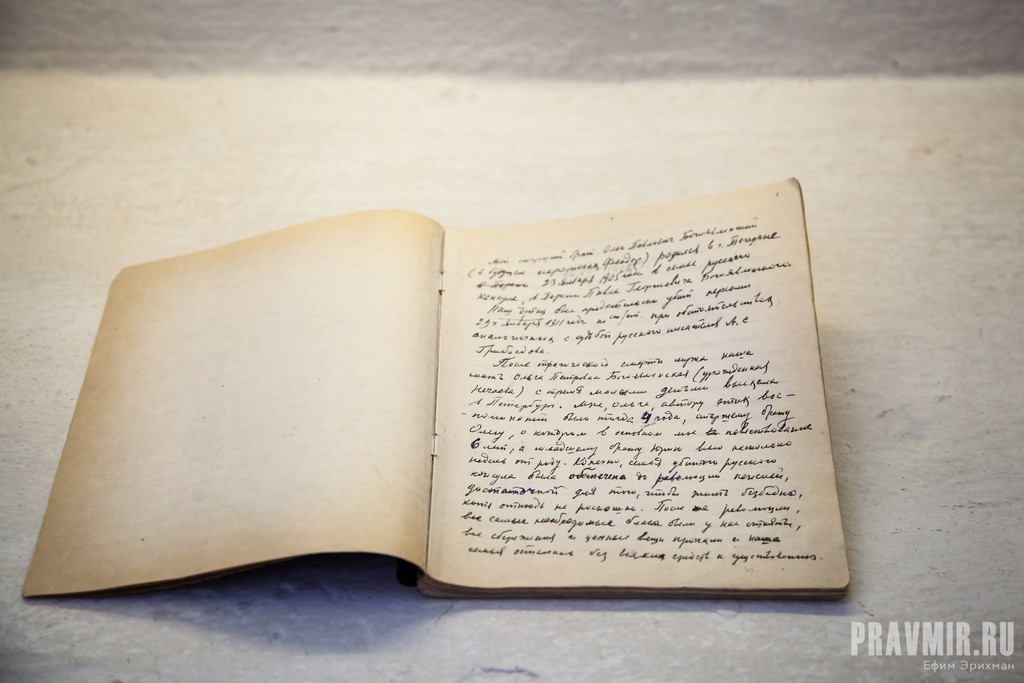 Мой старший брат Олег Павлович Богоявленский
(в будущем иеромонах Феодор) родился в г. Тегеране
в Персии 23 января 1905 года в семье русского
консула в Персии Павла Георгиевича Богоявленского.
Наш отец был предательски убит персами
29 января 1911 года на при обстоятельствах
аналогичных с судьбой русского писателя А. С.
Грибоедова.
После трагической смерти мужа наша
мать Ольга Петровна Богоявленская (урожденная
Нечаева) с тремя малыми детьми выехала
в Петербург. Мне, Ольге, автору этих вос-
-поминаний было тогда 4 года, старшему брату
Олегу, о котором в основном мое повествование
6 лет, а младшему брату Юрию всего несколько
недель от роду. Конечно, семья убитого русского
консула была обеспечена до революции пенсией,
достаточной для того, чтобы жить безбедно,
хотя отнюдь не роскошно. После же революции,
все самые необходимые блага были у нас отняты,
все сбережения и ценные вещи пропали и наша
семья осталась без всяких средств к существованию.
PRAVMIR.RU
Ефим Эрихман